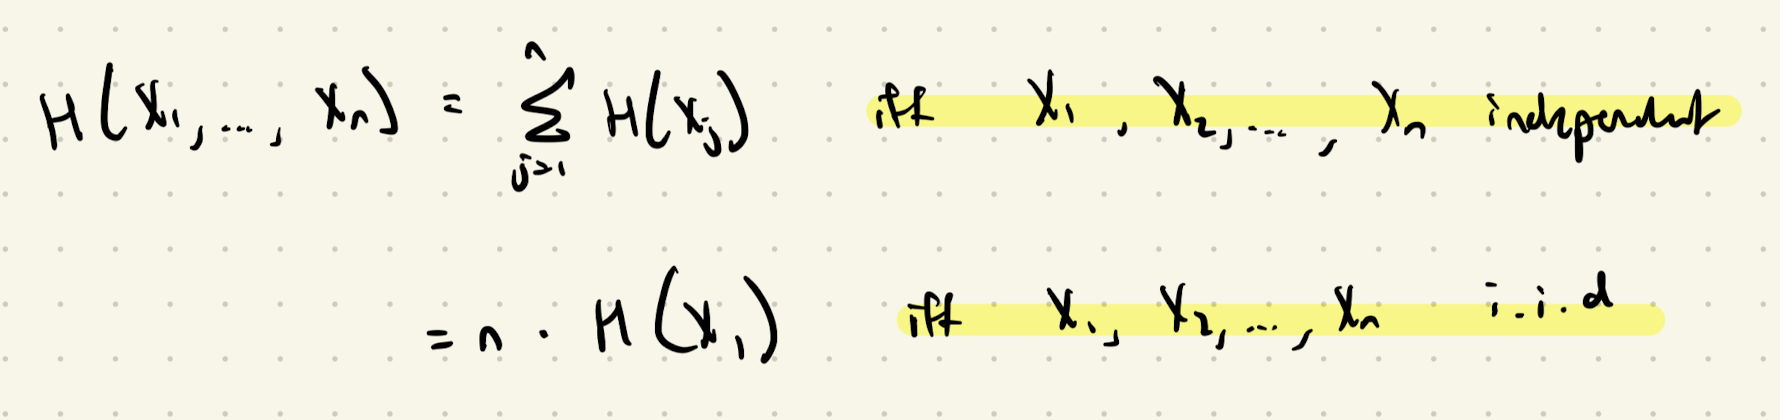 H(X₁, ..., Xₙ) = ∑ⁿⱼ₌₁ H(Xⱼ) iff X₁, X₂, ..., Xₙ independent
= n · H(X₁) iff X₁, X₂, ..., Xₙ i.i.d